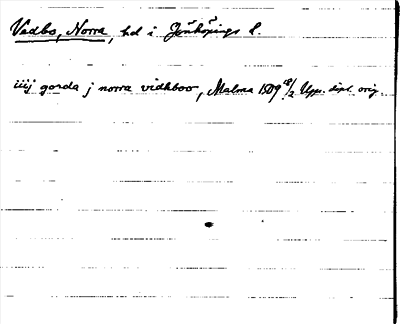 Vedbo, Norra, hd i Jönköpings l.
iiij gorda j norra vidhboo, Malma 1509 18/2 Upps. dipl. orig.